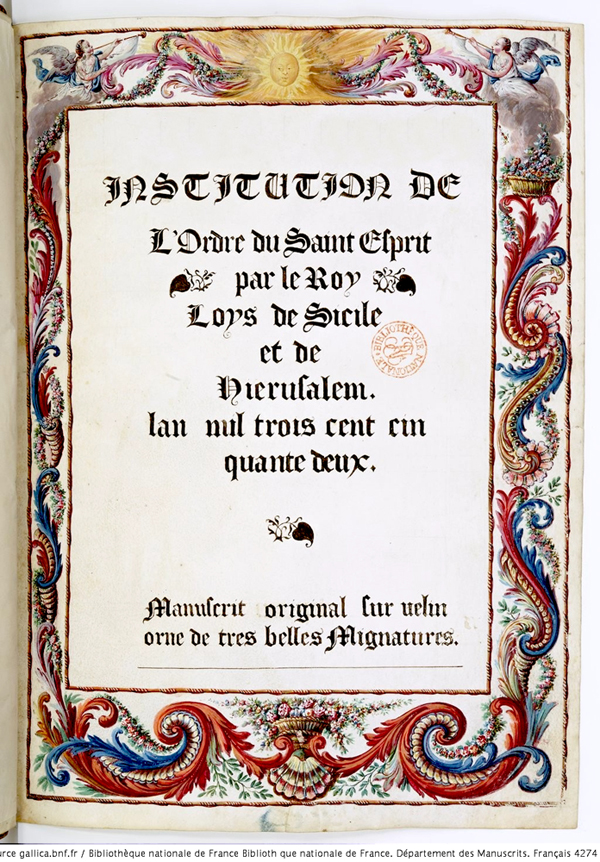 INSTITUTION DE
L'Ordre du Saint Esprit
par le Roy
Loys de Sicile
et de
Hierusalem.
lan mil trois cent cin
quante deux.
BIBLIOTHEQUE NATIONALE
Manuscrit original sur velin
orne de tres belles Mignatures.
urce gallica.bnf.fr / Bibliothèque nationale de France Biblioth que nationale de France. Département des Manuscrits. Français 4274